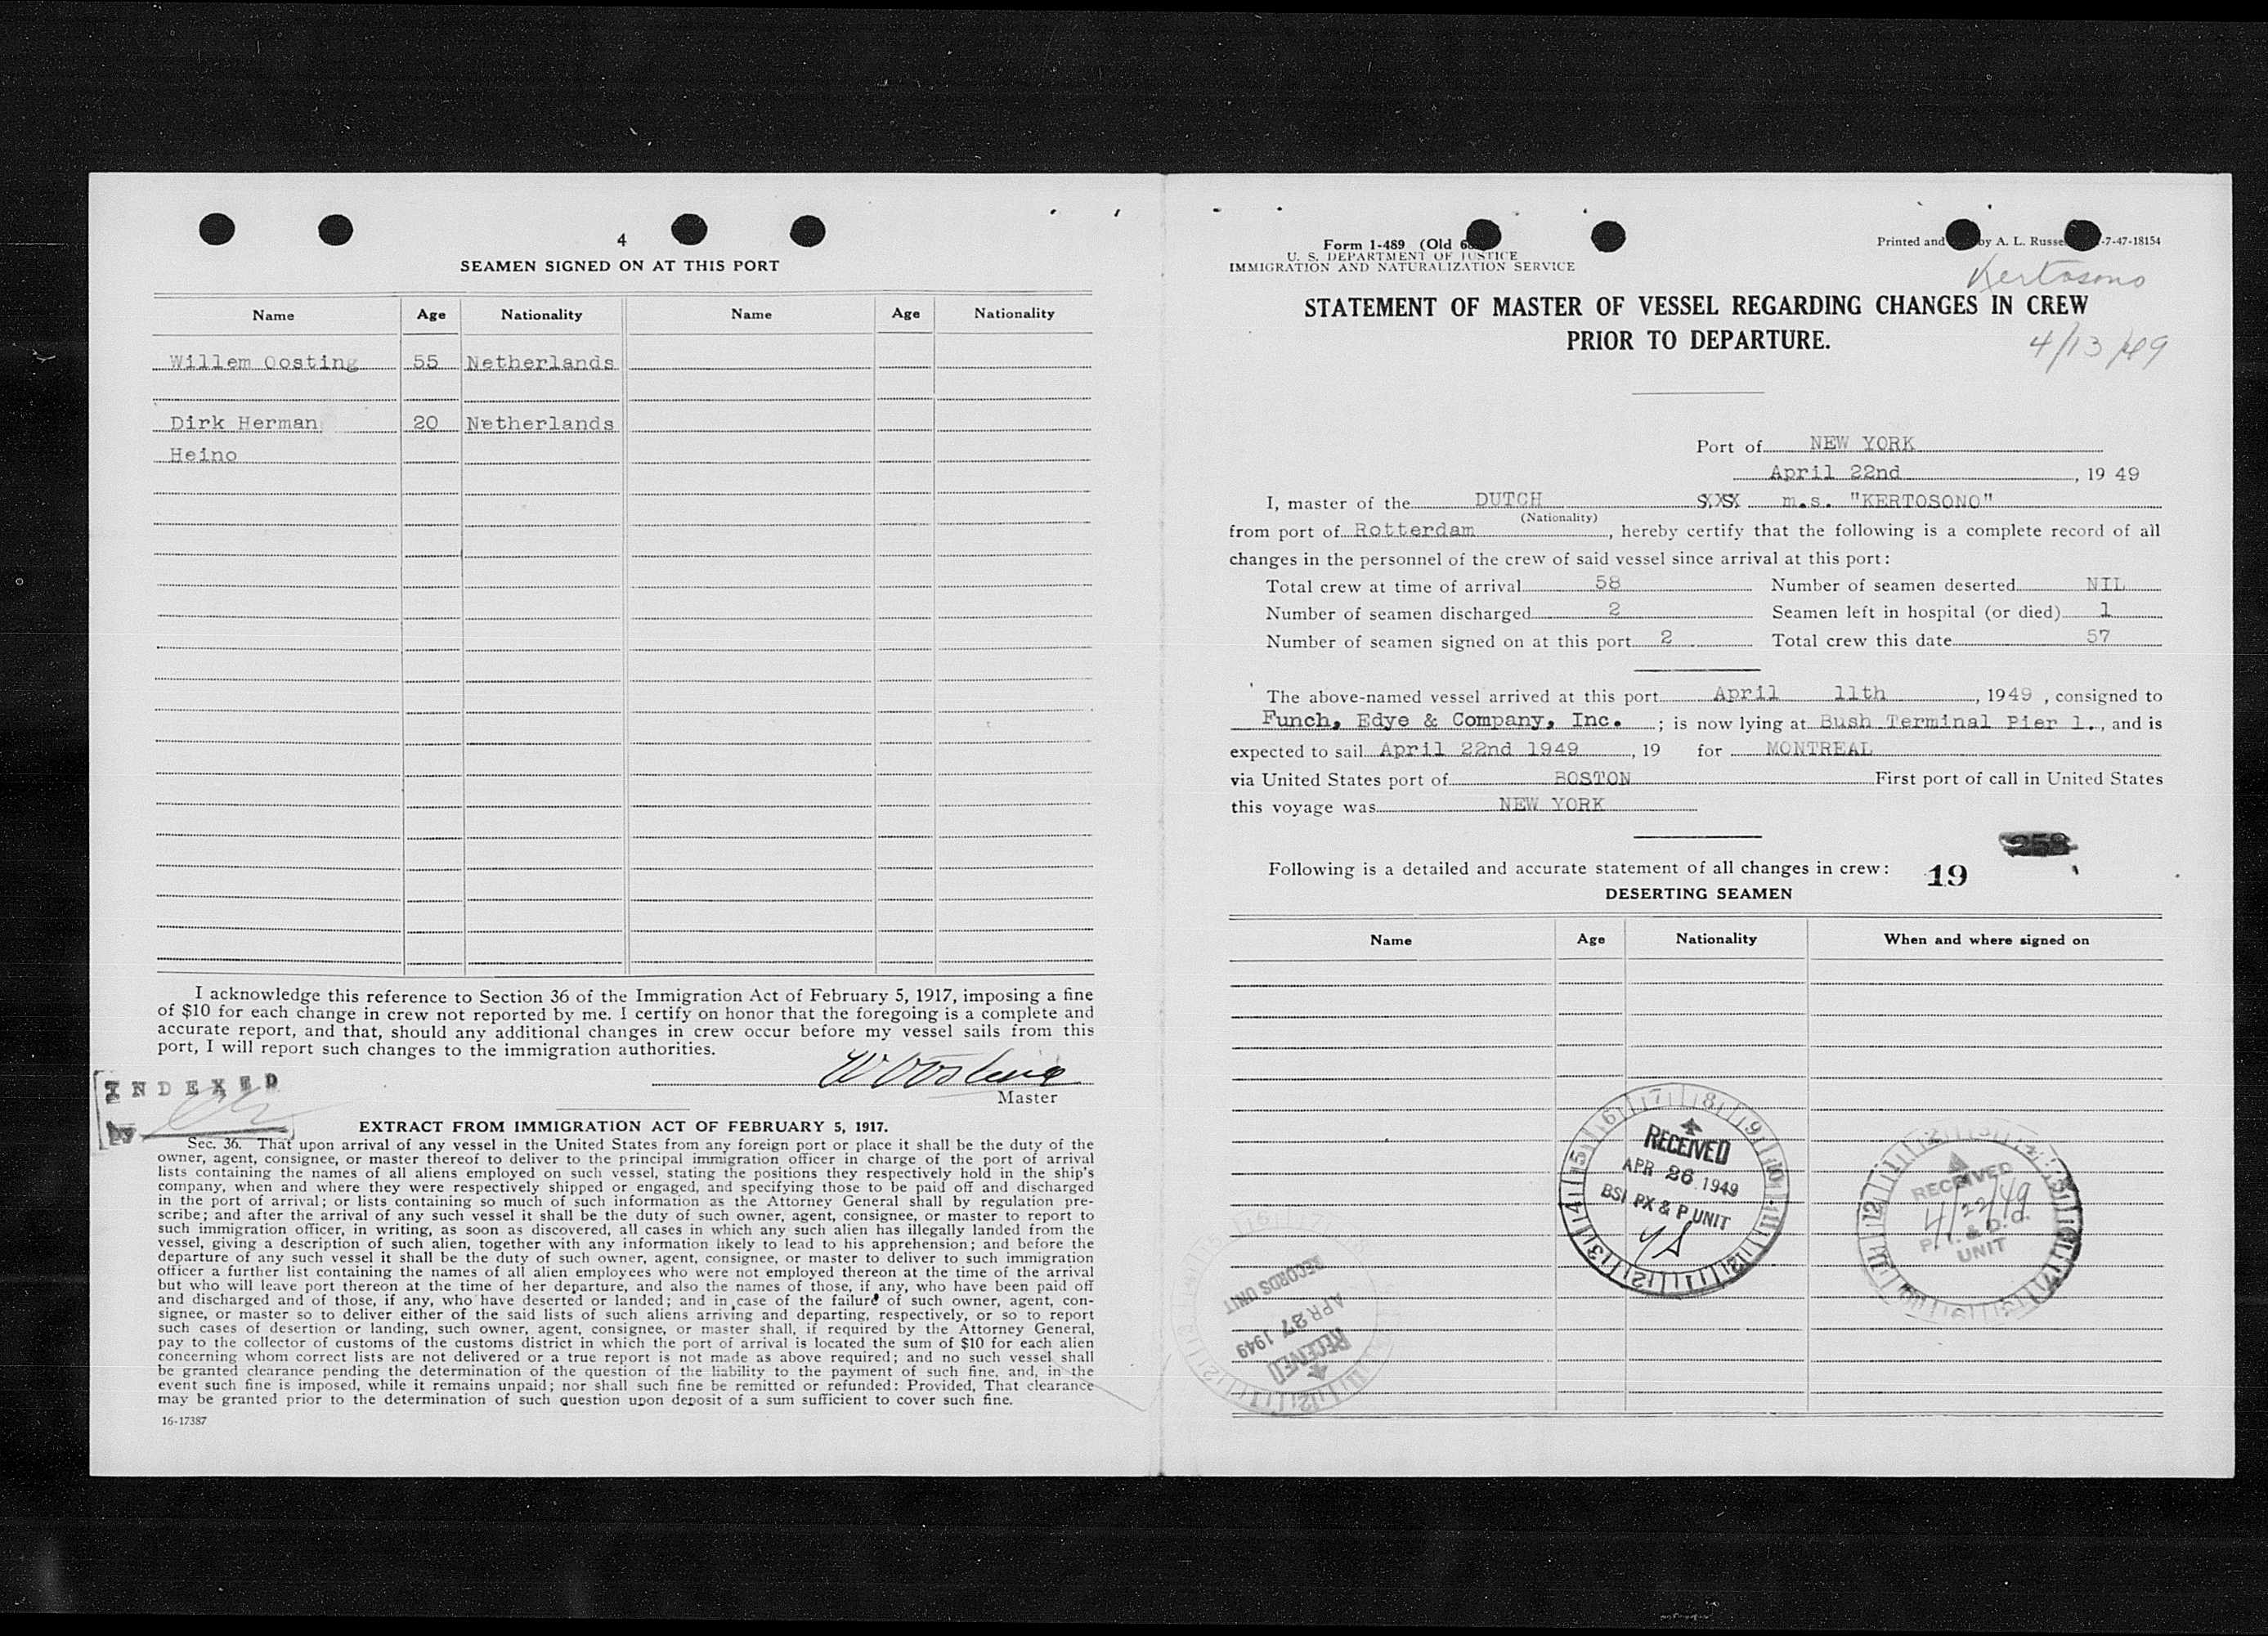 4
SEAMEN SIGNED ON AT THIS PORT
Name Age Nationality Name Age Nationality
Willem Oosting 55 Netherlands
Dirk Herman 20 Netherlands
Heino
I acknowledge this reference to Section 36 of the Immigration Act of February 5, 1917, imposing a fine
of $10 for each change in crew not reported by me. I certify on honor that the foregoing is a complete and
accurate report, and that, should any additional changes in crew occur before my vessel sails from this
port, I will report such changes to the immigration authorities.
Master
INDEXED
by
EXTRACT FROM IMMIGRATION ACT OF FEBRUARY 5, 1917.
Sec. 36. That upon arrival of any vessel in the United States from any foreign port or place it shall be the duty of the
owner, agent, consignee, or master thereof to deliver to the principal immigration officer in charge of the port of arrival
lists containing the names of all aliens employed on such vessel, stating the positions they respectively hold in the ship's
company, when and where they were respectively shipped or engaged, and specifying those to be paid off and discharged
in the port of arrival; or lists containing so much of such information as the Attorney General shall by regulation pre-
scribe; and after the arrival of any such vessel it shall be the duty of such owner, agent, consignee, or master to report to
such immigration officer, in writing, as soon as discovered, all cases in which any such alien has illegally landed from the
vessel, giving a description of such alien, together with any information likely to lead to his apprehension; and before the
departure of any such vessel it shall be the duty of such owner, agent, consignee, or master to deliver to such immigration
officer a further list containing the names of all alien employees who were not employed thereon at the time of the arrival
but who will leave port thereon at the time of her departure, and also the names of those, if any, who have been paid off
and discharged and of those, if any, who have deserted or landed; and in case of the failure of such owner, agent, con-
signee, or master so to deliver either of the said lists of such aliens arriving and departing, respectively, or so to report
such cases of desertion or landing, such owner, agent, consignee, or master shall, if required by the Attorney General,
pay to the collector of customs of the customs district in which the port of arrival is located the sum of $10 for each alien
concerning whom correct lists are not delivered or a true report is not made as above required; and no such vessel shall
be granted clearance pending the determination of the question of the liability to the payment of such fine, and, in the
event such fine is imposed, while it remains unpaid; nor shall such fine be remitted or refunded: Provided, That clearance
may be granted prior to the determination of such question upon deposit of a sum sufficient to cover such fine.
16-17387
Form 1-489 (Old
U. S. DEPARTMENT OF JUSTICE
IMMIGRATION AND NATURALIZATION SERVICE
Printed and by A. L. Russe -7-47-18154
Kertosono
STATEMENT OF MASTER OF VESSEL REGARDING CHANGES IN CREW
PRIOR TO DEPARTURE.
4/13/49
Port of NEW YORK
April 22nd, 19 49
I, master of the DUTCH m.s. "KERTOSONO"
(Nationality)
from port of Rotterdam, hereby certify that the following is a complete record of all
changes in the personnel of the crew of said vessel since arrival at this port:
Total crew at time of arrival 58 Number of seamen deserted NIL
Number of seamen discharged 2 Seamen left in hospital (or died) 1
Number of seamen signed on at this port 2 Total crew this date 57
The above-named vessel arrived at this port April 11th, 1949, consigned to
Funch, Edye & Company, Inc.; is now lying at Bush Terminal Pier 1., and is
expected to sail April 22nd 1949, 19 for MONTREAL
via United States port of BOSTON First port of call in United States
this voyage was NEW YORK
258
Following is a detailed and accurate statement of all changes in crew: 19
DESERTING SEAMEN
Name Age Nationality When and where signed on
RECEIVED
APR 26 1949
BSI PX & P UNIT
RECEIVED
4/22/49
UNIT
RECEIVED
APR 27 1949
RECORDS UNIT